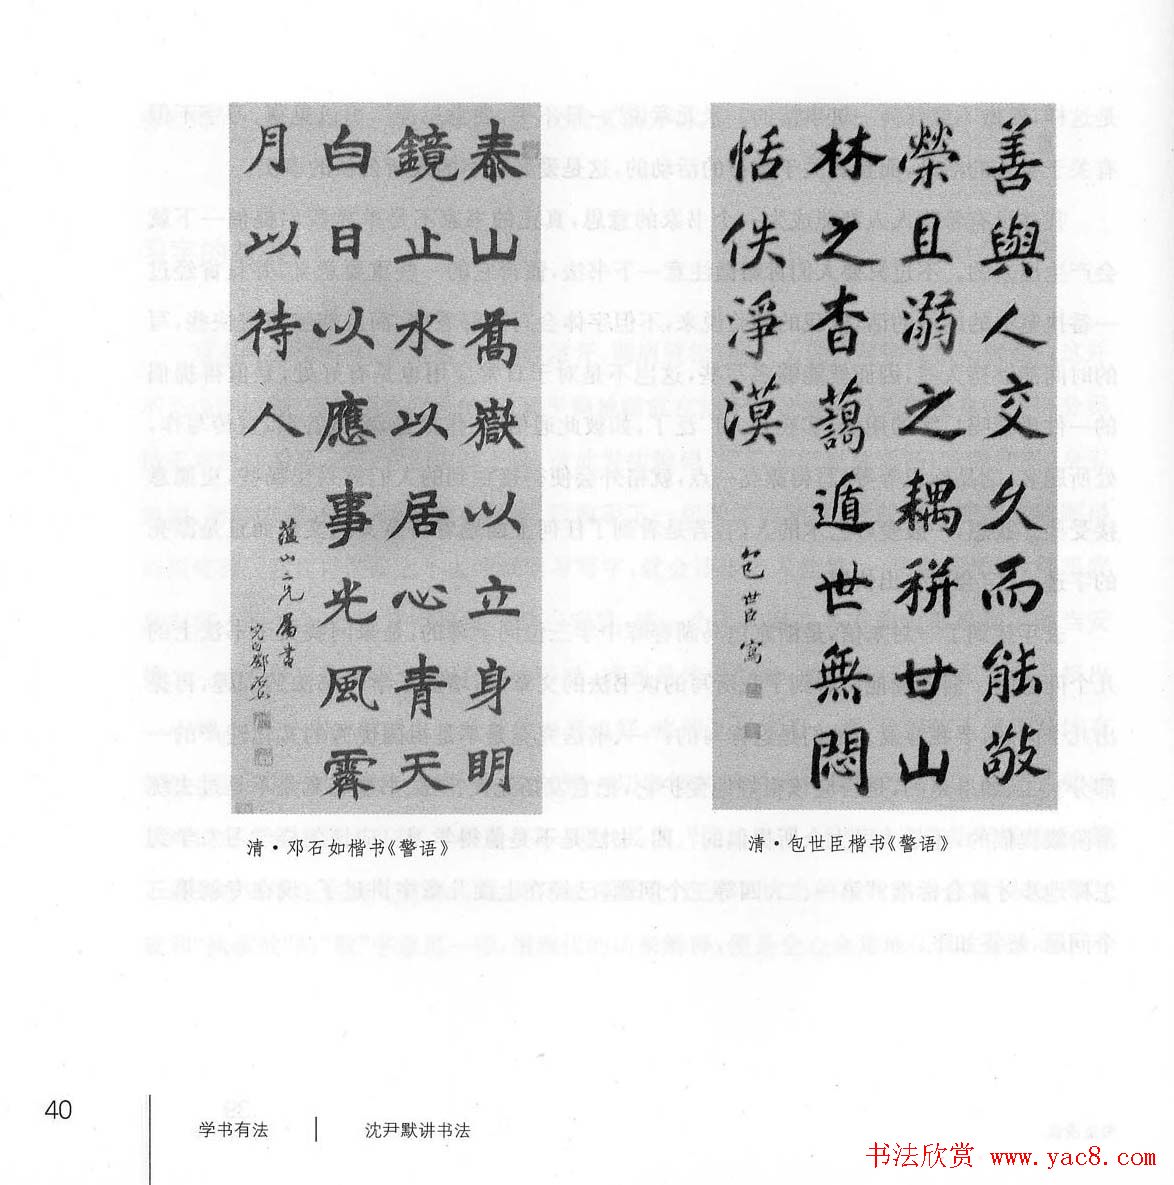 泰山喬嶽以立身明
鏡止水以居心青天
白日以應事光風霽
月以待人
蘊山二兄屬書
完白鄧琰
清·邓石如楷书《警语》
善與人交久而能敬
榮且溺之耦耕甘山
林之杳藹遁世無悶
恬佚淨漠
包世臣寫
清·包世臣楷书《警语》
40
学书有法 | 沈尹默讲书法
书法欣赏 www.yac8.com